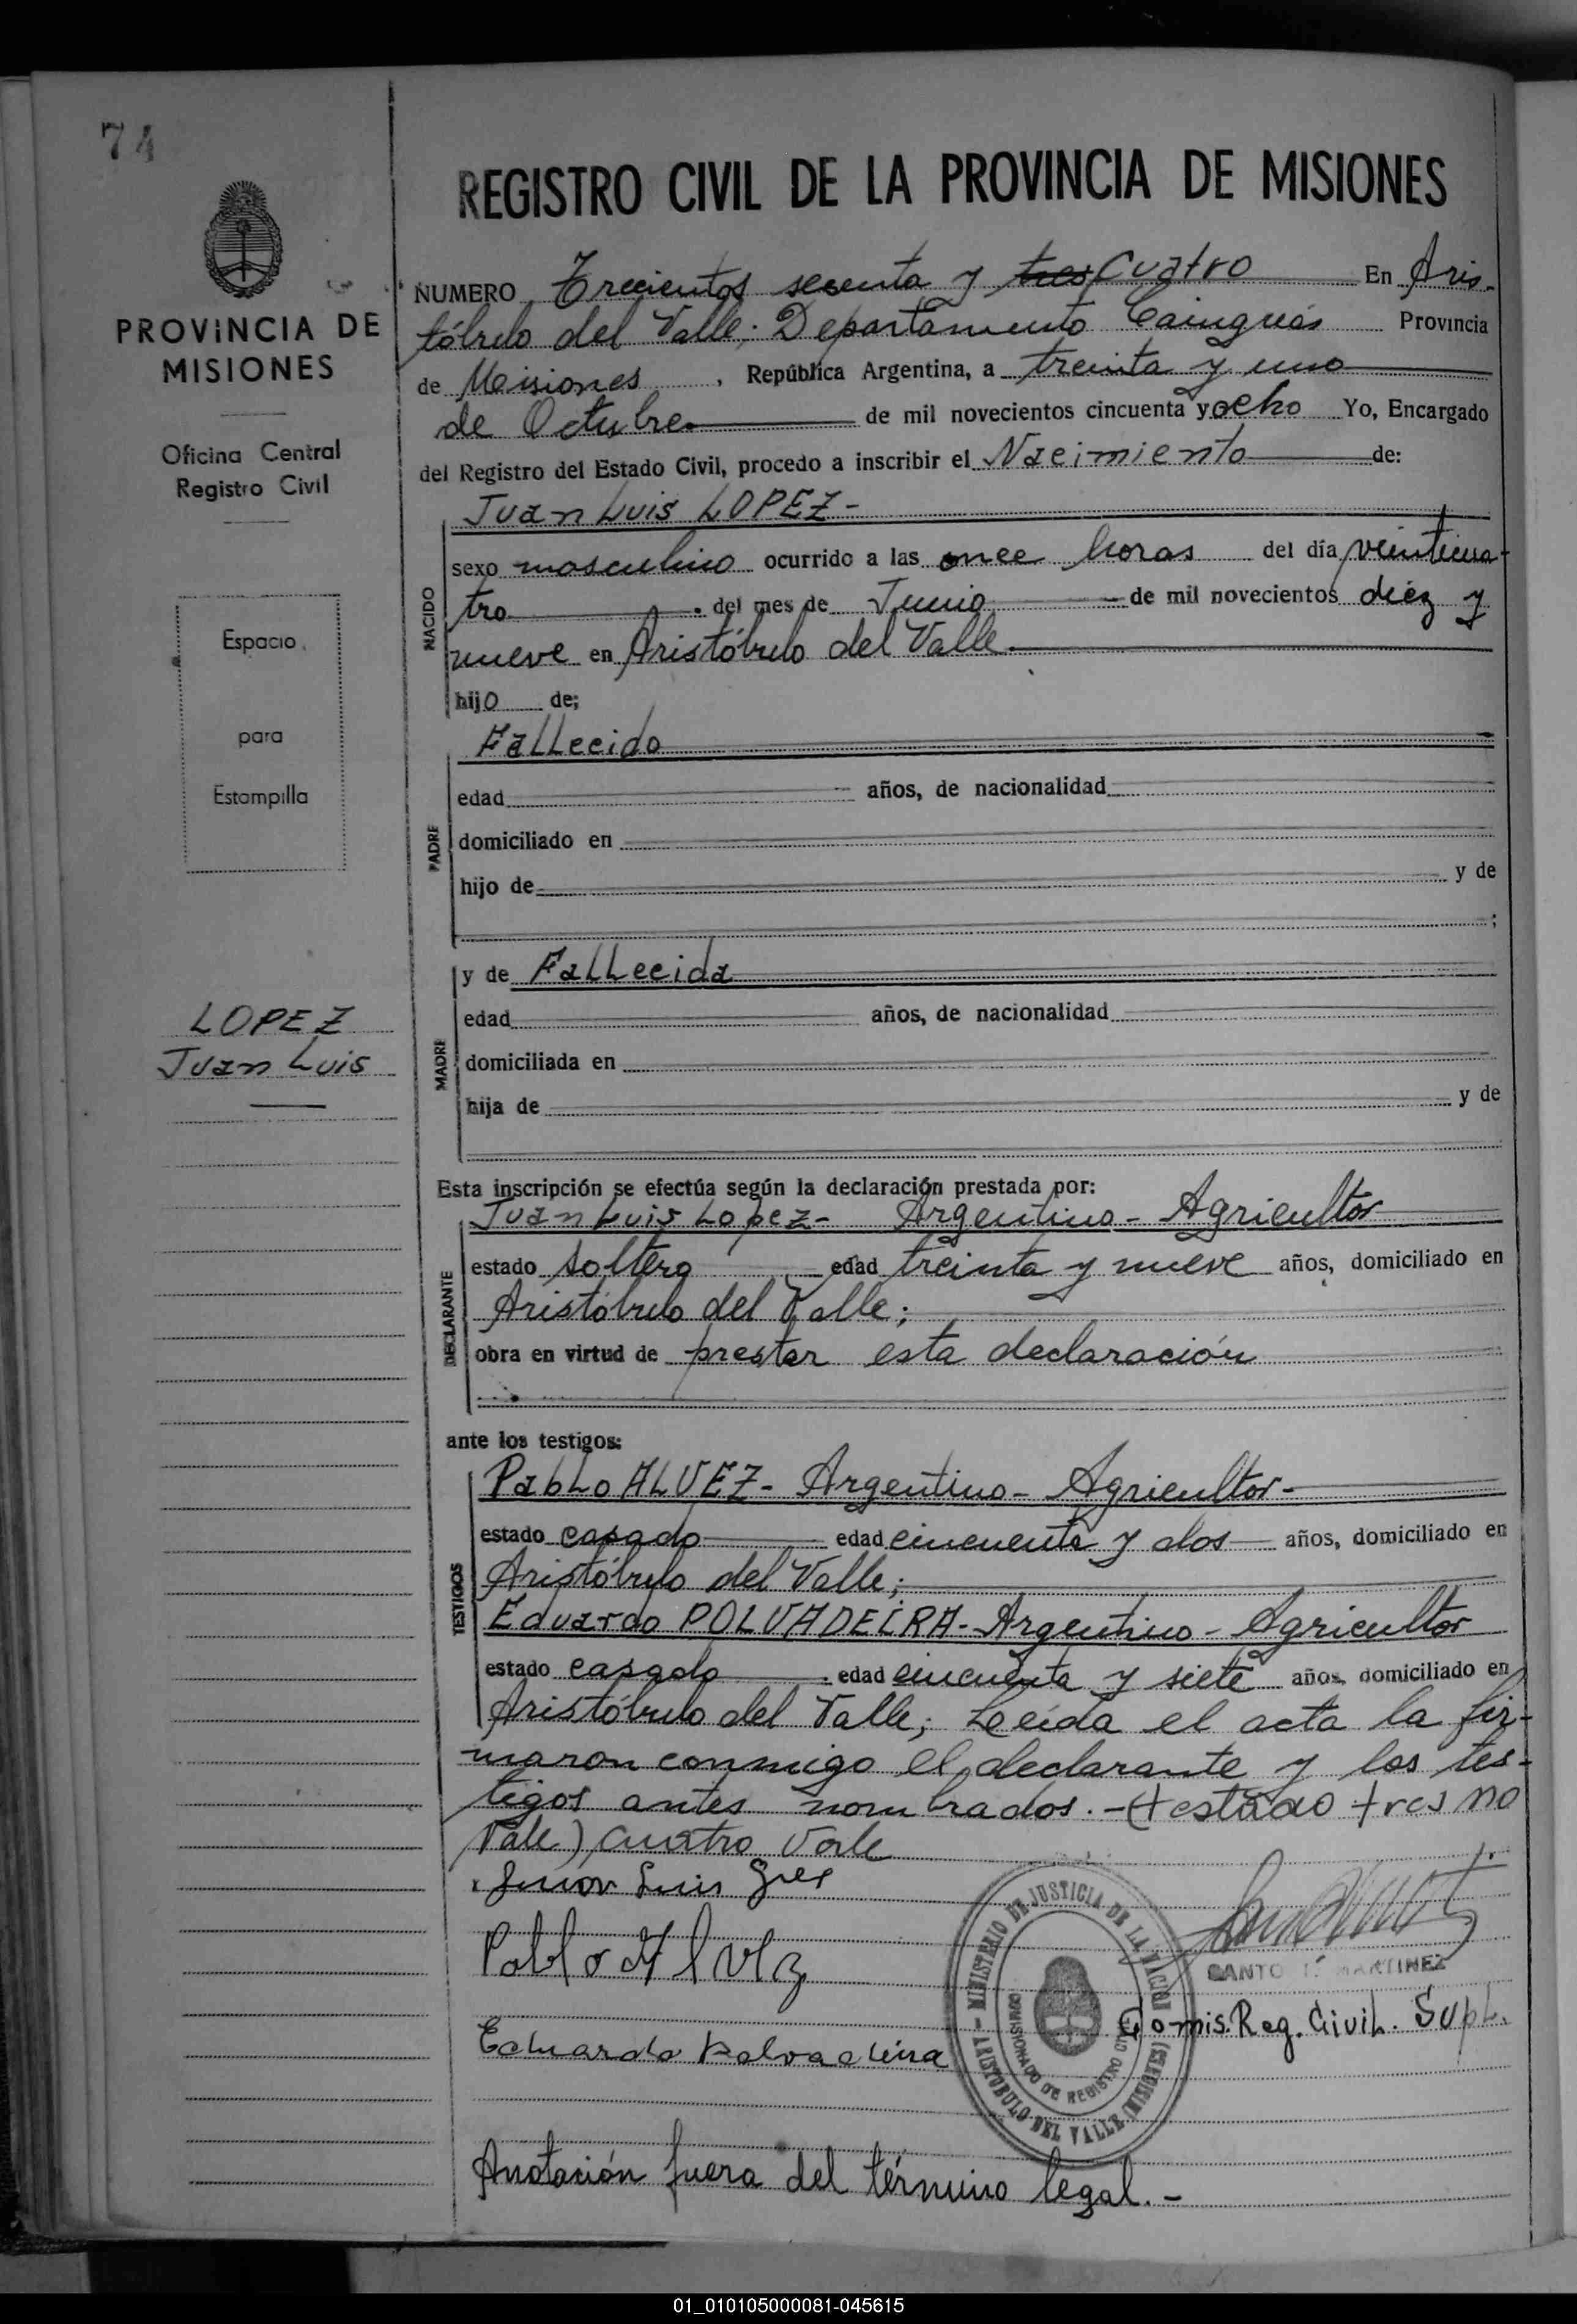 74
REGISTRO CIVIL DE LA PROVINCIA DE MISIONES
PROVINCIA DE
MISIONES
Oficina Central
Registro Civil
Espacio
para
Estampilla
LOPEZ
Juan Luis
NUMERO Trecientos sesenta y tres cuatro En Aris-
tóbulo del Valle; Departamento Cainguás Provincia
de Misiones, República Argentina, a treinta y uno
de Octubre de mil novecientos cincuenta y ocho Yo, Encargado
del Registro del Estado Civil, procedo a inscribir el Nacimiento de:
Juan Luis LOPEZ-
NACIDO
sexo masculino ocurrido a las once horas del día veinticua-
tro del mes de Junio de mil novecientos diéz y
nueve en Aristóbulo del Valle.
hijo de;
PADRE
Fallecido
edad años, de nacionalidad
domiciliado en
hijo de y de
;
MADRE
y de Fallecida
edad años, de nacionalidad
domiciliada en
hija de y de
Esta inscripción se efectúa según la declaración prestada por:
DECLARANTE
Juan Luis Lopez- Argentino- Agricultor
estado soltero edad treinta y nueve años, domiciliado en
Aristóbulo del Valle;
obra en virtud de prestar esta declaración
ante los testigos:
TESTIGOS
Pablo ALVEZ- Argentino- Agricultor-
estado casado edad cincuenta y dos años, domiciliado en
Aristóbulo del Valle;
Eduardo POLVADEIRA- Argentino- Agricultor
estado casado edad cincuenta y siete años, domiciliado en
Aristóbulo del Valle; Leída el acta la fir-
maron conmigo el declarante y los tes-
tigos antes nombrados.-(testado tres no
Vale) cuatro Vale
Luis
Pablo Alvez
Eduardo Polvadeira
MINISTERIO DE JUSTICIA DE LA NACION
COMISIONADO DE REGISTRO CIVIL
ARISTOBULO DEL VALLE (MISIONES)
SANTO MARTINEZ
Comis. Reg. Civil. Supl.
Anotación fuera del término legal.-
01_010105000081-045615